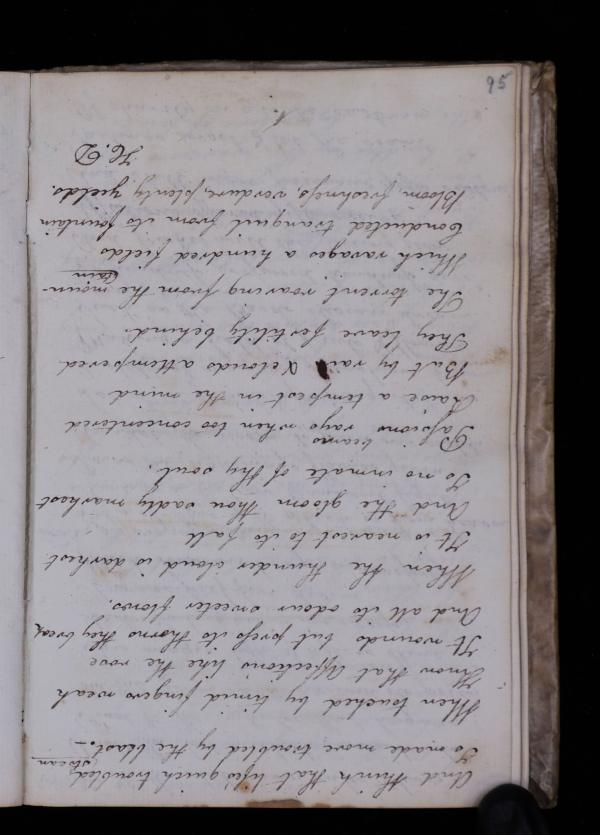 And think that life's quick troubled
Ocean
Is made more troubled by the blast. —
When touched by timid fingers weak
Know that Affection's like the rose
It wounds but press its thorns they break
And all its odour sweeter flows.
When the thunder cloud is darkest
It is nearest to its fall
And the gloom thou sadly markest
Is no inmate of thy soul.
beams
Passions rays when too concentered
Raise a tempest in the mind
But by rain & clouds attempered
They leave fertility behind.
The torrent roaring from the moun-
tain
Which ravages a hundred fields
Conducted tranquil from its fountain
Bloom, freshness, verdure, plenty yields.
H. D
95